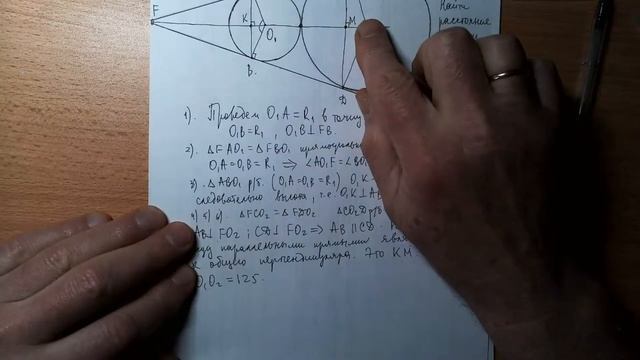 F
K
M
O₁
B.
D
Найти
расстояние
1). Проведем O₁A = R₁ в точку
O₁B = R₁, O₁B ⊥ FB.
2). ΔFAO₁ = ΔFBO₁
O₁A = O₁B = R₁ ⇒ ∠AO₁F = ∠BO₁
3). ΔABO₁ р/б. (O₁A = O₁B = R₁) O₁K
следовательно высота, т.е. O₁K ⊥ AB
4) 5) 6). ΔFCO₂ = ΔFDO₂ ΔCO₂D р/б
AB ⊥ FO₂; CD ⊥ FO₂ ⇒ AB || CD.
параллельными прямыми
общего перпендикуляра. Это KM
O₁O₂ = 125.